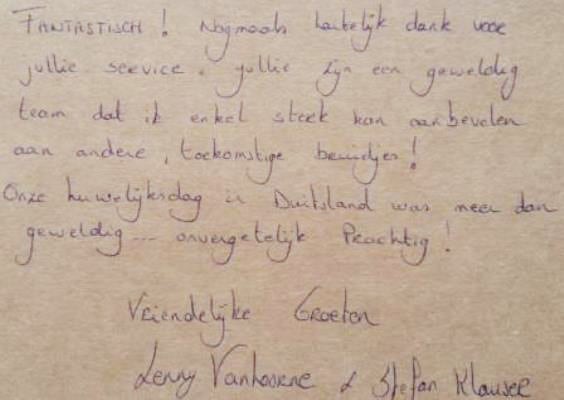 FANTASTISCH! Nogmaals hartelijk dank voor
jullie service. jullie zijn een geweldig
team dat ik enkel sterk kan aanbevelen
aan andere, toekomstige bruidjes!
Onze huwelijksdag in Duitsland was meer dan
geweldig... onvergetelijk Prachtig!
Vriendelijke Groeten
Lenny & Stefan